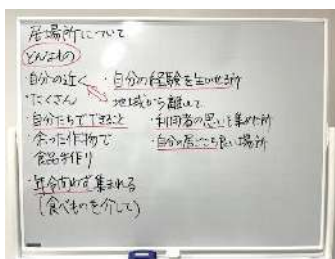 居場所について
どんなもの
・自分の近く
・たくさん
・自分たちでできること
・余った作物で
食品を作り
・年令問わず集まれる
(食べものを介して)
・自分の経験を生かせる所
地域から離れて
・利用者の思いを集めた所
・自分の居ごこち良い場所